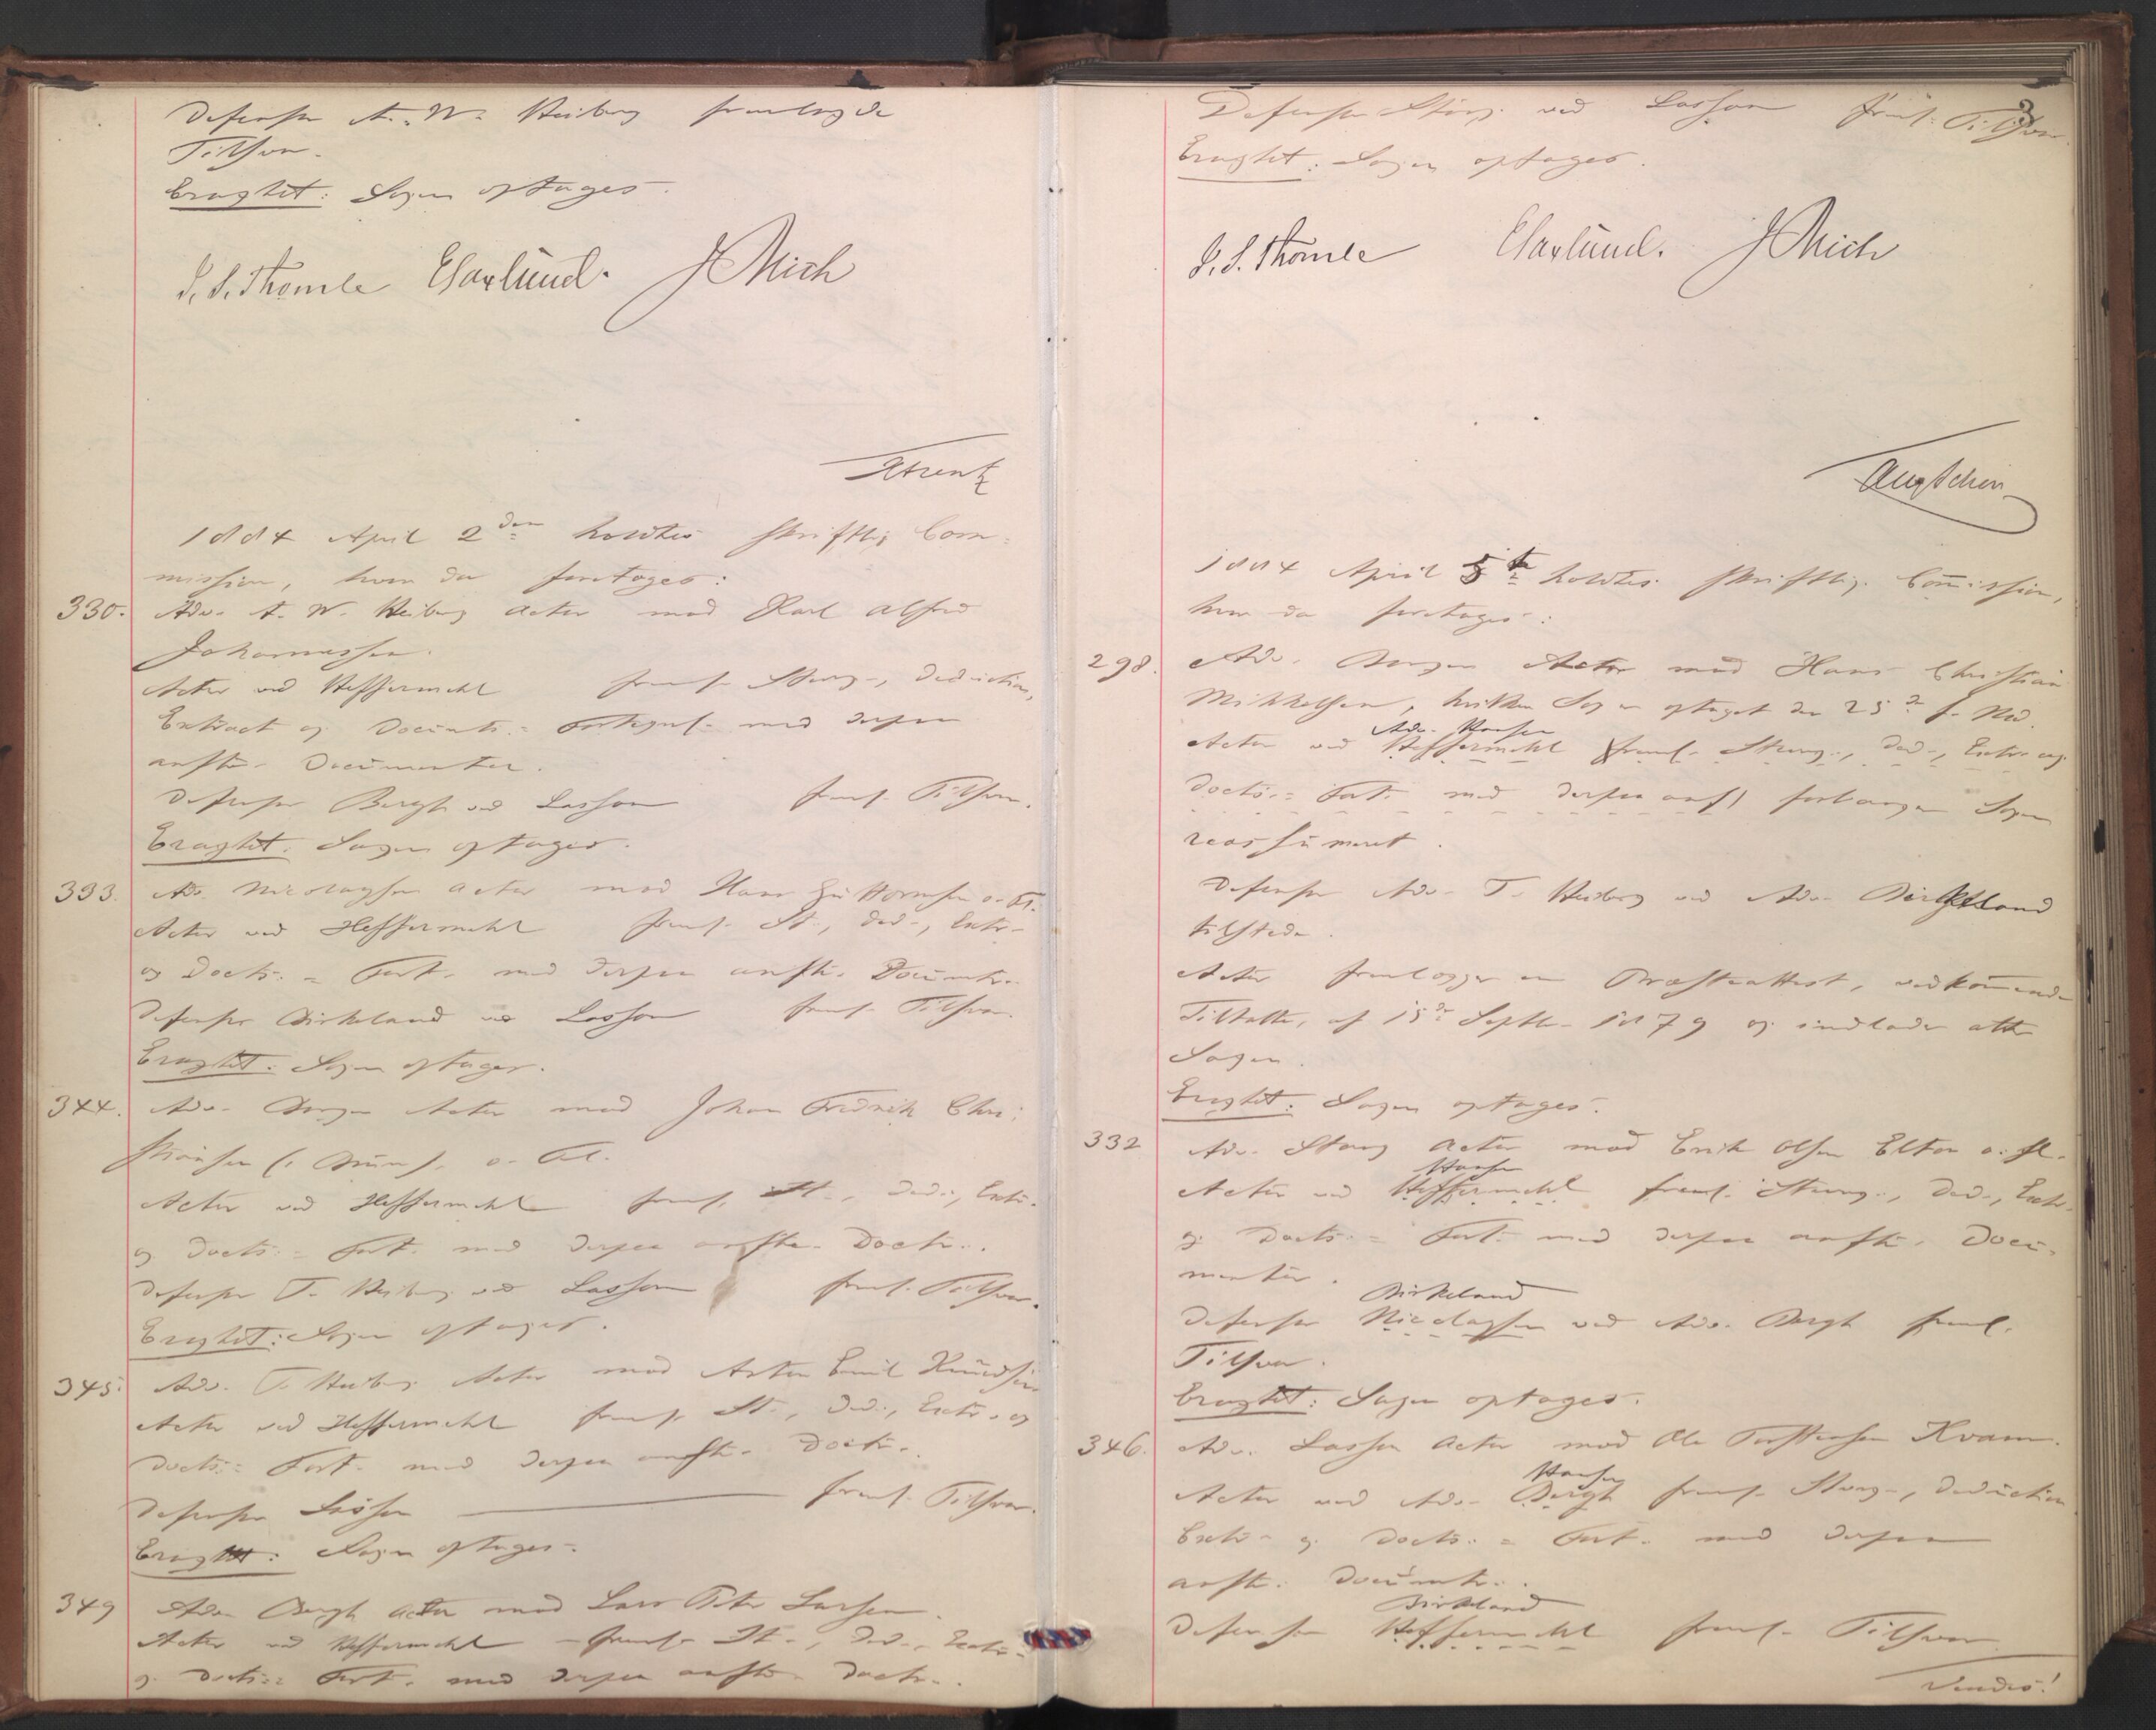 Defensor A. W. Heiberg fremlagde
Tilsvar.
Eragtet: Sagen optages.
S. S. Thomle
1884 April 2den holdtes skriftlig Com-
mission, hvor da foretoges:
330. Adv. A. W. Heiberg Actor mod Karl Alfred
Johannessen.
Actor ved Heffermehl freml. Stevng, Deduction,
Extract og Docmts.= Fortegnl. med derpaa
anfte. Documenter.
Defensor Bergh ved Lasson freml. Tilsvar.
Eragtet: Sagen optages.
393. Adv. Nicolaysen Actor mod Hans o. Fl.
Actor ved Heffermehl freml. St., Ded., Extr.
og Docts.= Fort. med derpaa anfte. Documtr.
Defensor Birkeland ved Lasson freml. Tilsvar.
Eragtet: Sagen optages.
344. Adv. Actor mod Johan Fredrik Chri-
stiansen o. Fl.
Actor ved Heffermehl freml. St., Ded., Extr.
og Docts.= Fort. med derpaa anfte. Doctr.
Defensor T. Heiberg ved Lasson freml. Tilsvar.
Eragtet: Sagen optages.
345. Adv. T. Heiberg Actor mod Anton Emil Knudsen
Actor ved Heffermehl freml. St., Ded., Extr. og
Docts.= Fort. med derpaa anfte. Doctr.
Defensor Lasson freml. Tilsvar.
Eragtet: Sagen optages.
349 Adv. Bergh Actor mod Lars Peter Larsen.
Actor ved Heffermehl freml. St., Ded., Extr.
og Docts.= Fort. med derpaa anfte. Doctr.
3
Defensor Stang ved Lasson freml. Tilsvar.
Eragtet: Sagen optages.
S. S. Thomle
1884 April 5te holdtes skriftlig Commission,
hvor da foretoges:
298. Adv. Actor mod Hans Christian
Mikkelsen, hvilken Sag er optaget den 25de f. Md.
Adv. Hansen
Actor ved Heffermehl freml. Stevng., Ded., Extr. og
Docts.= Fort. med derpaa anft. forlanger Sagen
reassumeret.
Defensor Adv. T. Heiberg ved Adv. Birkeland
tilstede.
Actor fremlægger en Præsteattest, vedkommende
Tiltalte, af 15de Septbr. 1879 og indlader atter
Sagen.
Eragtet: Sagen optages.
332 Adv. Stang Actor mod Erik Olsen Elton o. fl.
Hansen
Actor ved Heffermehl freml. Stevng., Ded., Extr.
og Docts.= Fort. med derpaa anfte. Docu-
menter.
Birkeland
Defensor Nicolaysen ved Adv. Bergh freml.
Tilsvar.
Eragtet: Sagen optages.
346. Adv. Lasson Actor mod Ole Torstensen Kvam.
Hansen
Actor ved Adv. Bergh freml. Stevng., Deduction
Extr. og Docts.= Fort. med derpaa
anfte. Documtr.
Birkeland
Defensor Heffermehl freml. Tilsvar.
Vendes!